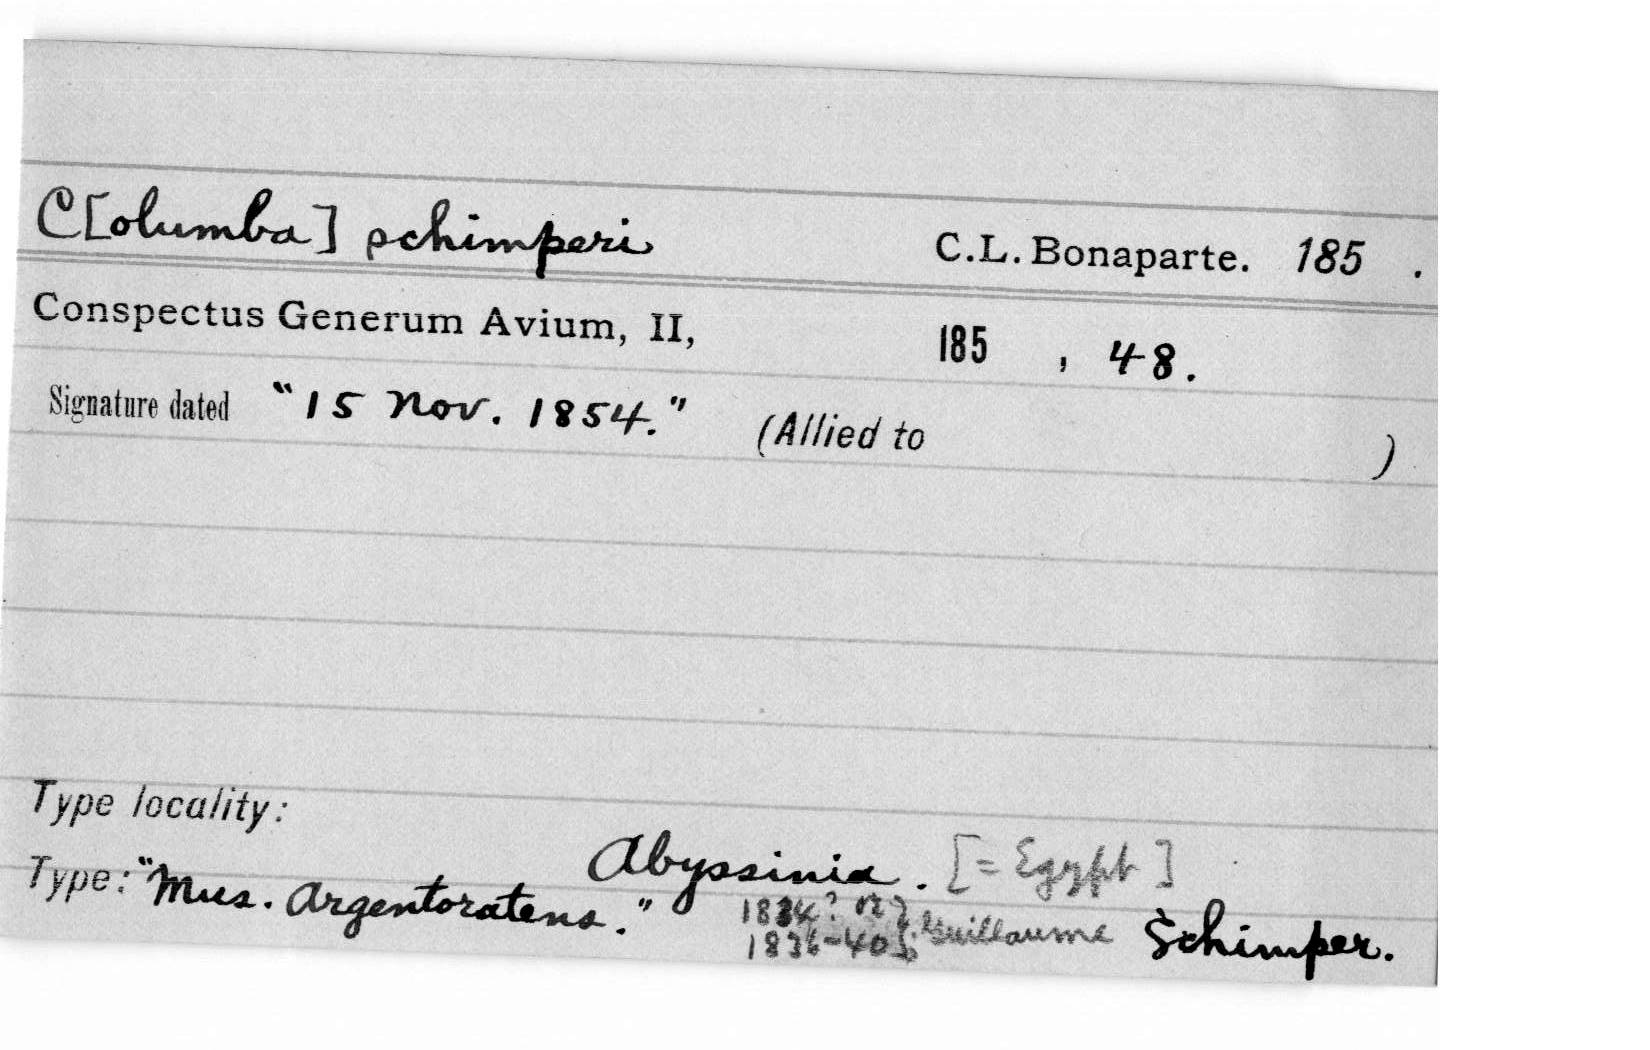 C[olumba] schimperi C.L. Bonaparte. 185 .
Conspectus Generum Avium, II, 185 , 48.
Signature dated "15 Nov. 1854." (Allied to )
Type locality:
Abyssinia. [= Egypt]
Type: "Mus. Argentoratens." 1834? or
1836-40 Guillaume Schimper.